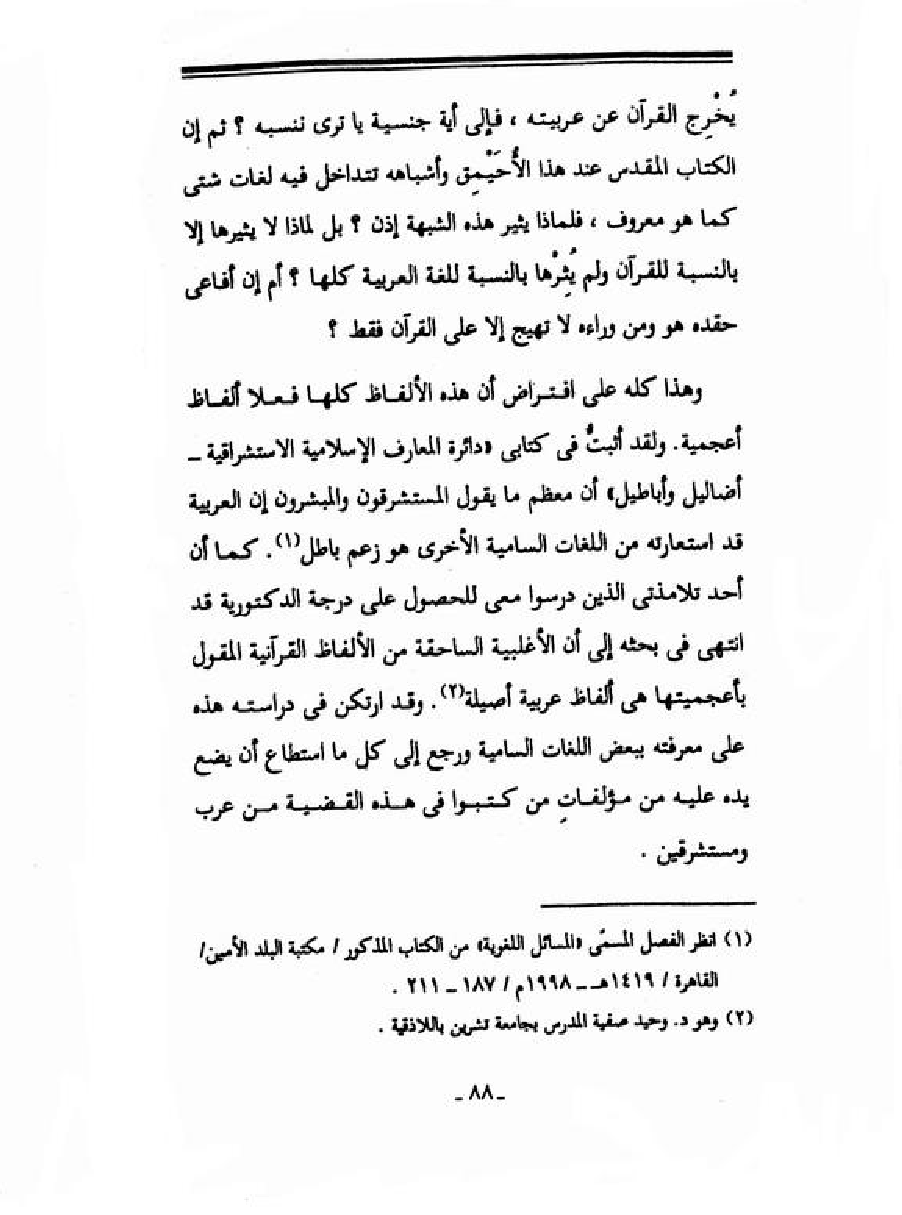 يُخْرِج القرآن عن عربيته ، فإلى أية جنسية يا ترى ننسبه ؟ ثم إن
الكتاب المقدس عند هذا الأُحَيْمِق وأشباهه تتداخل فيه لغات شتى
كما هو معروف ، فلماذا يثير هذه الشبهة إذن ؟ بل لماذا لا يثيرها إلا
بالنسبة للقرآن ولم يُثِرْها بالنسبة للغة العربية كلها ؟ أم إن أفاعى
حقده هو ومن وراءه لا تهيج إلا على القرآن فقط ؟
وهذا كله على افتراض أن هذه الألفاظ كلها فعلا ألفاظ
أعجمية. ولقد أثبتُّ فى كتابى «دائرة المعارف الإسلامية الاستشراقية ـ
أضاليل وأباطيل» أن معظم ما يقول المستشرقون والمبشرون إن العربية
قد استعارته من اللغات السامية الأخرى هو زعم باطل(١). كما أن
أحد تلامذتى الذين درسوا معى للحصول على درجة الدكتورية قد
انتهى فى بحثه إلى أن الأغلبية الساحقة من الألفاظ القرآنية المقول
بأعجميتها هى ألفاظ عربية أصيلة(٢). وقد ارتكن فى دراسته هذه
على معرفته ببعض اللغات السامية ورجع إلى كل ما استطاع أن يضع
يده عليه من مؤلفاتِ من كتبوا فى هذه القضية من عرب
ومستشرقين .
(١) انظر الفصل المسمَّى «المسائل اللغوية» من الكتاب المذكور / مكتبة البلد الأمين/
القاهرة / ١٤١٩هـ ـ ١٩٩٨م / ١٨٧ ـ ٢١١ .
(٢) وهو د. وحيد صفية المدرس بجامعة تشرين باللاذقية .
ـ ٨٨ ـ